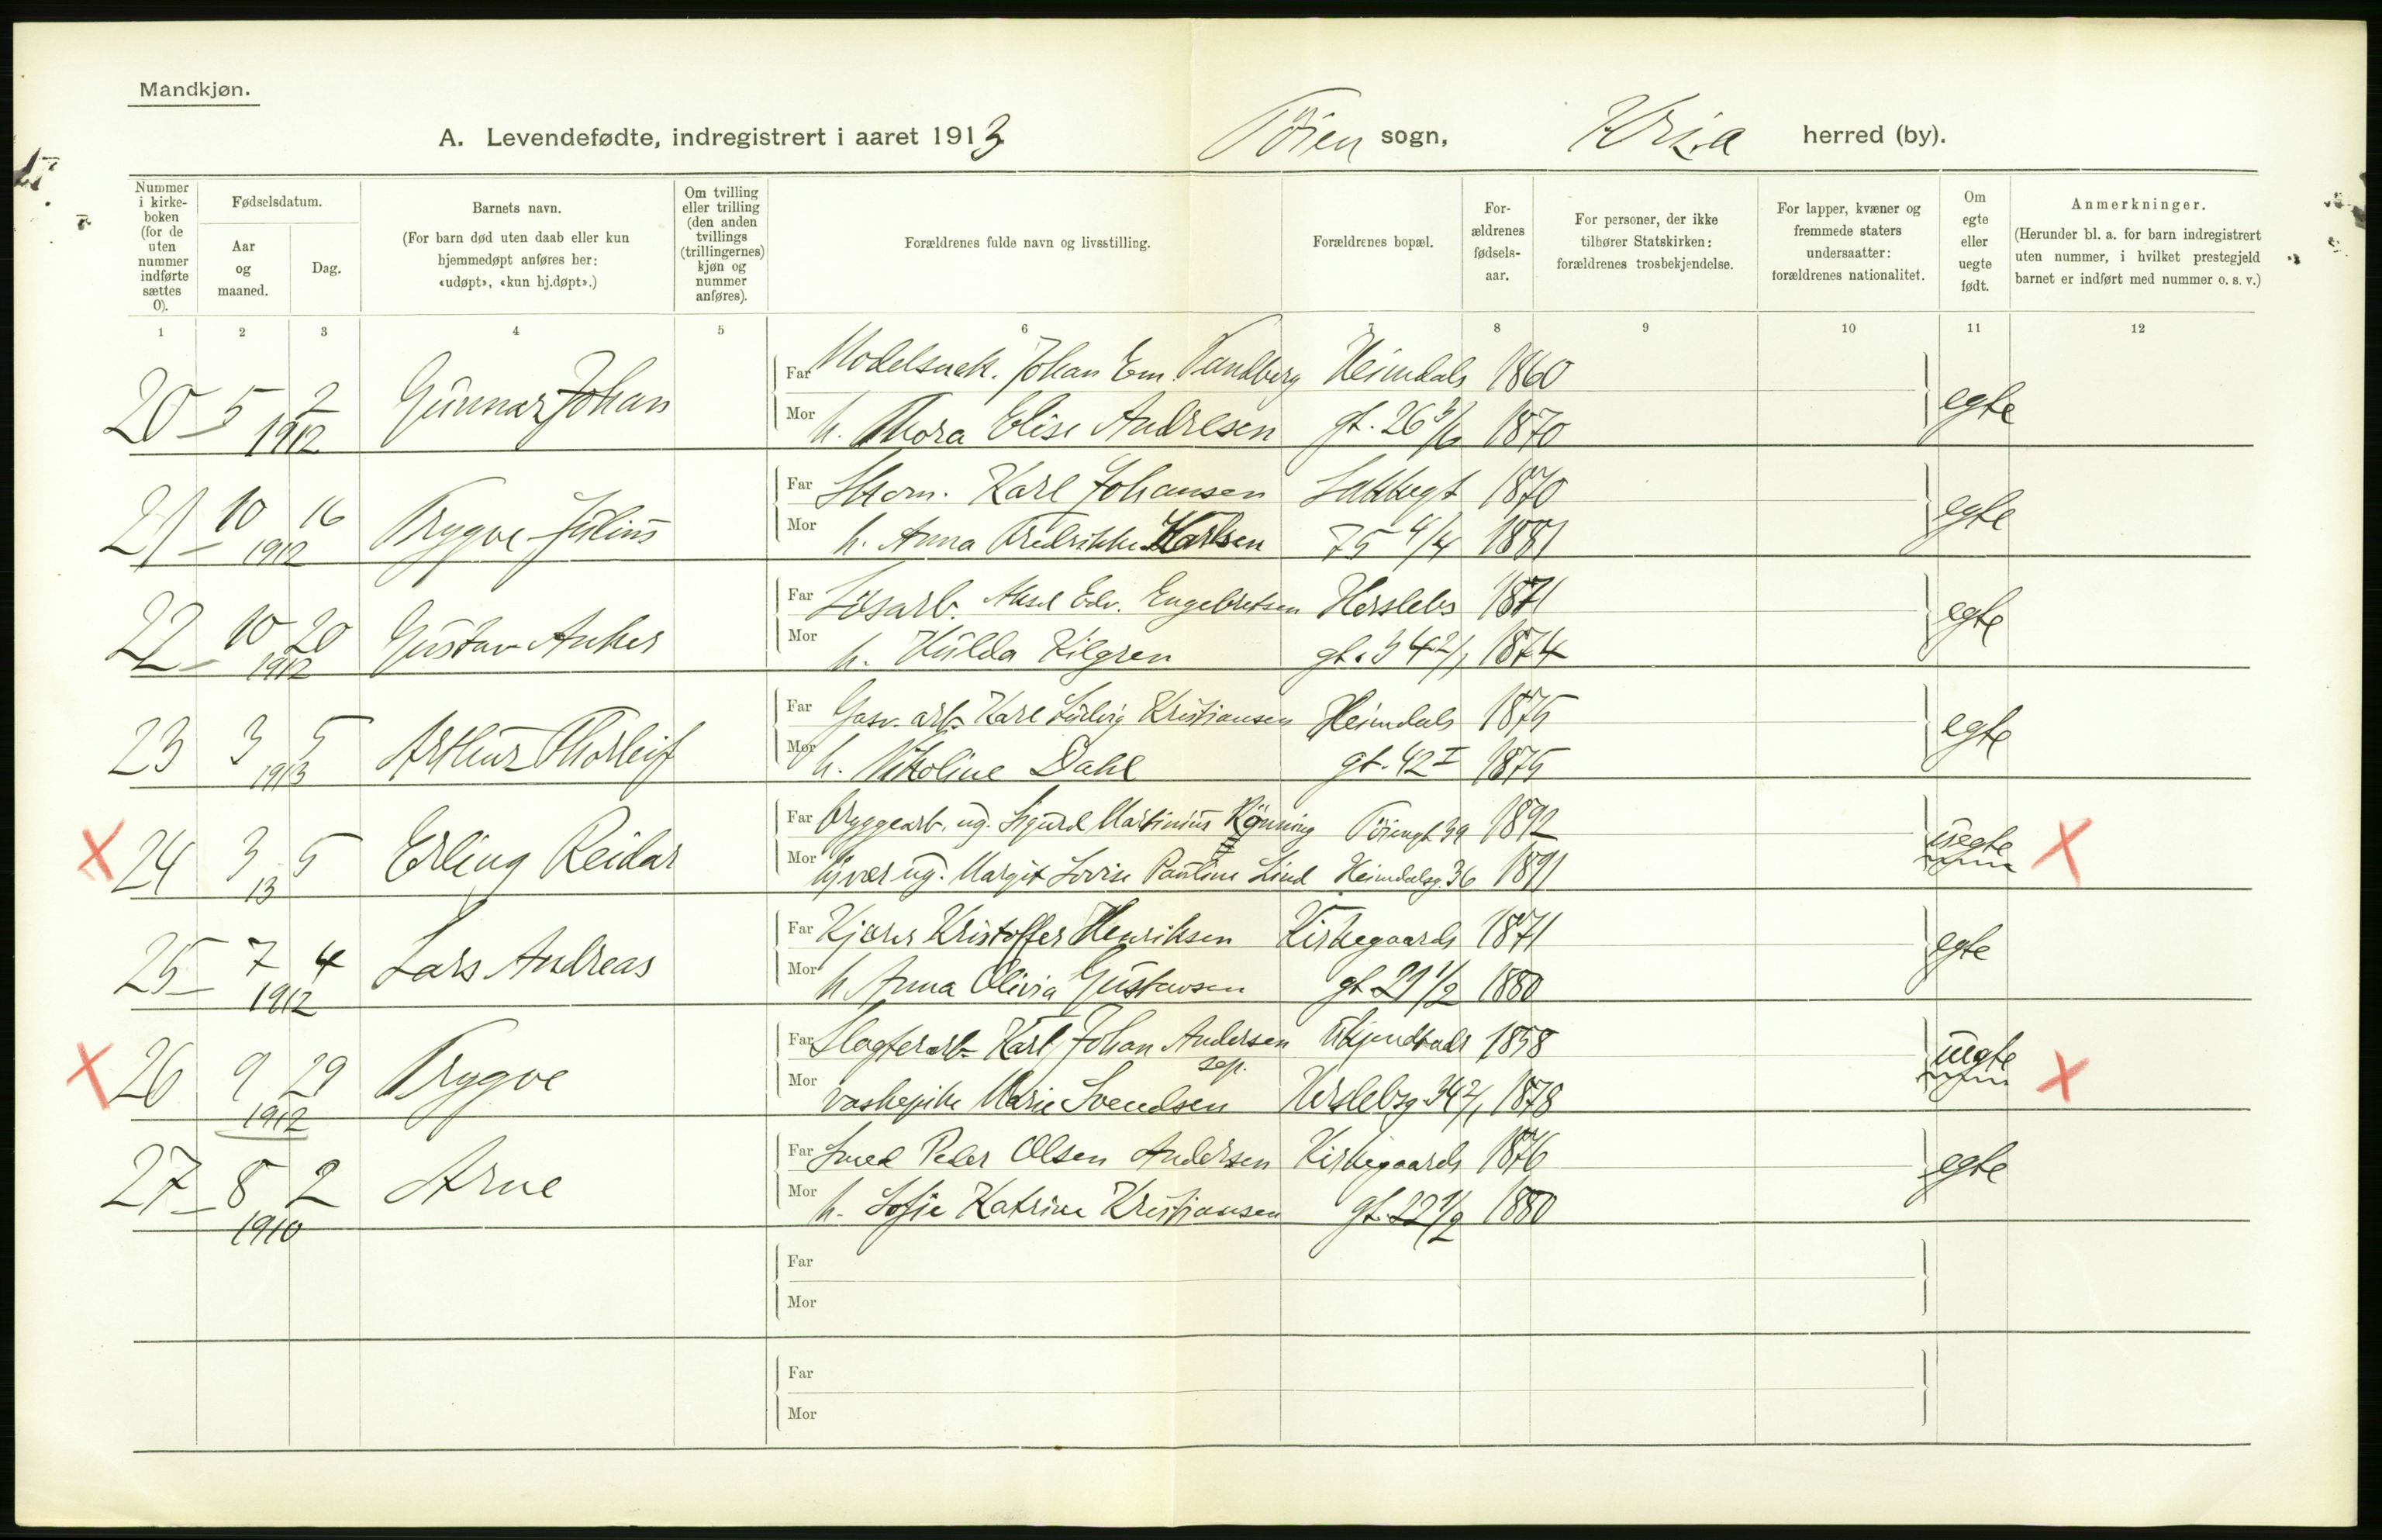 Mandkjøn.
A. Levendefødte, indregistrert i aaret 1913 Töien sogn, Kr.a herred (by).
Nummer i kirke-boken (for de uten nummer indførte sættes 0).
Fødselsdatum.
Aar og maaned.
Dag.
Barnets navn.
(For barn død uten daab eller kun hjemmedøpt anføres her: «udøpt», «kun hj.døpt».)
Om tvilling eller trilling (den anden tvillings (trillingernes) kjøn og nummer anføres).
Forældrenes fulde navn og livsstilling.
Forældrenes bopæl.
For-ældrenes fødsels-aar.
For personer, der ikke tilhører Statskirken: forældrenes trosbekjendelse.
For lapper, kvæner og fremmede staters undersaatter: forældrenes nationalitet.
Om egte eller uegte født.
Anmerkninger.
(Herunder bl. a. for barn indregistrert uten nummer, i hvilket prestegjeld barnet er indført med nummer o. s. v.)
1 2 3 4 5 6 7 8 9 10 11 12
Far Modelsnek. Johan Em. Tandberg Heimdals 1860
20 5 1912 2 Gunnar Johan egte
Mor h. Thora Elise Andresen gt. 26 3/6 1870
Far Karl Johansen 1870
21 10 1912 16 Trygve Julius egte
Mor h. Anna Fredrikke Karlsen 75 4/4 1881
Far Lösarb. Aksel Edv. Engebretsen Herslebs 1871
22 10 1912 20 Gustav Anker egte
Mor h. Hulda Kilgren gt. 34 2/1 1874
Far Gasv. arb. Karl Ludvig Kristiansen Heimdals 1875
23 3 1913 5 Arthur Thorleif egte
Mor h. Nikoline Dahl gt. 42 I 1875
Far Bryggearb. ug. Sigurd Martinius Rönning Töiengt 39 1892
24 3 13 5 Erling Reidar uegte
Mor ug. Margit Lovise Pauline Lind Heimdalsg. 36 1891
Far Kjører Kristoffer Henriksen Kirkegaards 1871
25 7 1912 4 Lars Andreas egte
Mor h. Anna Olivia Gustavsen gt 21 1/2 1880
Far Slagterarb. Karl Johan Andersen sep. 1858
26 9 1912 29 Trygve uegte
Mor vaskepike Marie Svendsen Herslebsg 34 2/1 1878
Far Smed Peder Olsen Andersen Kirkegaards 1876
27 8 1910 2 Arne egte
Mor h. Sofie Katrine Kristiansen gt. 22 1/2 1880
Far
Mor
Far
Mor